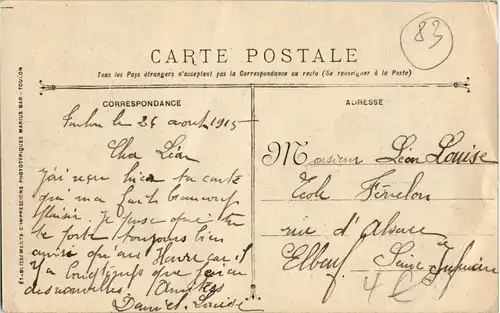 83
CARTE POSTALE
Tous les Pays étrangers n'acceptent pas la Correspondance au recto (Se renseigner à la Poste)
ÉTABLISSEMENTS D'IMPRESSIONS PHOTOTYPIQUES MARIUS BAR - TOULON
CORRESPONDANCE
Toulon le 26 août 1915
Cher Léon
J'ai reçu hier ta carte
qui m'a fait beaucoup
plaisir. Je pense que tu
te porte toujours bien
ainsi qu'au Havre car il
y a longtemps que j'ai eu
des nouvelles. Amitiés
Daniel Louise
ADRESSE
Monsieur Léon Louise
Ecole Fénelon
rue d'Alsace
Elbeuf Seine Inférieure
4